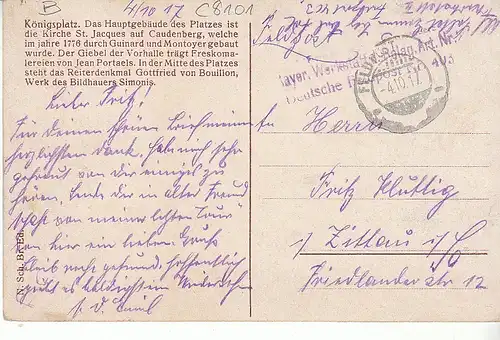 B 4/10 17 C8101
Königsplatz. Das Hauptgebäude des Platzes ist
die Kirche St. Jacques auf Caudenberg, welche
im Jahre 1776 durch Guinard und Montoyer gebaut
wurde. Der Giebel der Vorhalle trägt Freskoma-
lereien von Jean Portaels. In der Mitte des Platzes
steht das Reiterdenkmal Gottfried von Bouillon,
Werk des Bildhauers Simonis.
Lieber Fritz!
Für Deinen schönen Brief meinen
herzlichsten Dank. Hab mich sehr
gefreut von Dir einiges zu
hören. Sende Dir in alter Freund
schaft von meiner Tour
von hier ein lieben Gruß
Bleib recht gesund, hoffentlich
gibt es baldigstem Wiedersehn
N. Sch. Br. Ed.
Feldpost
Bayer. Werkstatt
Deutsche Feldpost 403
4.10.17
Herrn
Fritz
Zittau i/S
Friedlander str 12